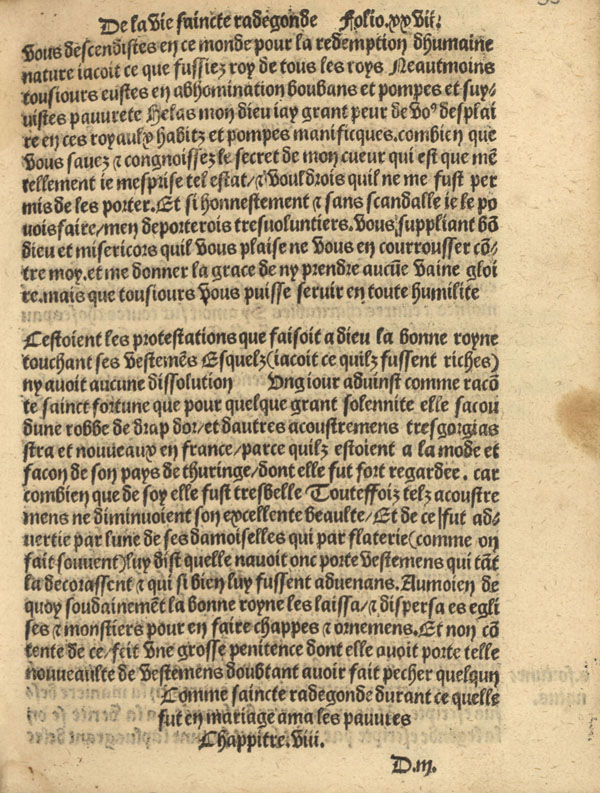 De la vie saincte radegonde Folio.xxvii.
Vous descendistes en ce monde pour la redemption dhumaine
nature iacoit ce que fussiez roy de tous les roys Neautmoins
tousiours eustes en abhomination boubans et pompes et suy-
uistes pauurete Helas mon dieu iay grant peur de voꝰ desplai
re en ces royaulx habitz et pompes manificques. combien que
vous sauez ⁊ congnoissez le secret de mon cueur qui est que mē
tellement ie mesprise tel estat/⁊ vouldrois quil ne me fust per
mis de les porter. Et si honnestement ⁊ sans scandalle ie le po
uois faire/men deporterois tresvoluntiers. Vous suppliant bō
dieu et misericors quil vous plaise ne vous en courrousser cō-
tre moy. et me donner la grace de ny prendre aucūe vaine gloi
re. mais que tousiours vous puisse seruir en toute humilite
Cestoient les protestations que faisoit a dieu la bonne royne
touchant ses vestemēs Esquelz (iacoit ce quilz fussent riches)
ny auoit aucune dissolution Ung iour aduinst comme racō
te sainct fortune que pour quelque grant solennite elle sacou
dune robbe de drap dor/et dautres acoustremens tresgorgias
stra et nouueaux en france/parce quilz estoient a la mode et
facon de son pays de thuringe/dont elle fut fort regardee. car
combien que de soy elle fust tresbelle Touteffoiz telz acoustre
mens ne diminuoient son excellente beaulte/Et de ce fut ad-
uertie par lune de ses damoiselles qui par flaterie (comme on
fait souuent) luy dist quelle nauoit onc porte vestemens qui tāt
la decorassent ⁊ qui si bien luy fussent aduenans. Aumoien de
quoy soudainemēt la bonne royne les laissa/⁊ dispersa es egli
ses ⁊ monstiers pour en faire chappes ⁊ ornemens. Et non cō
tente de ce/feit vne grosse penitence dont elle auoit porte telle
nouueaulte de vestemens doubtant auoir fait pecher quelqun
Comme saincte radegonde durant ce quelle
fut en mariage ama les pauures
Chappitre.viii.
D.iii.